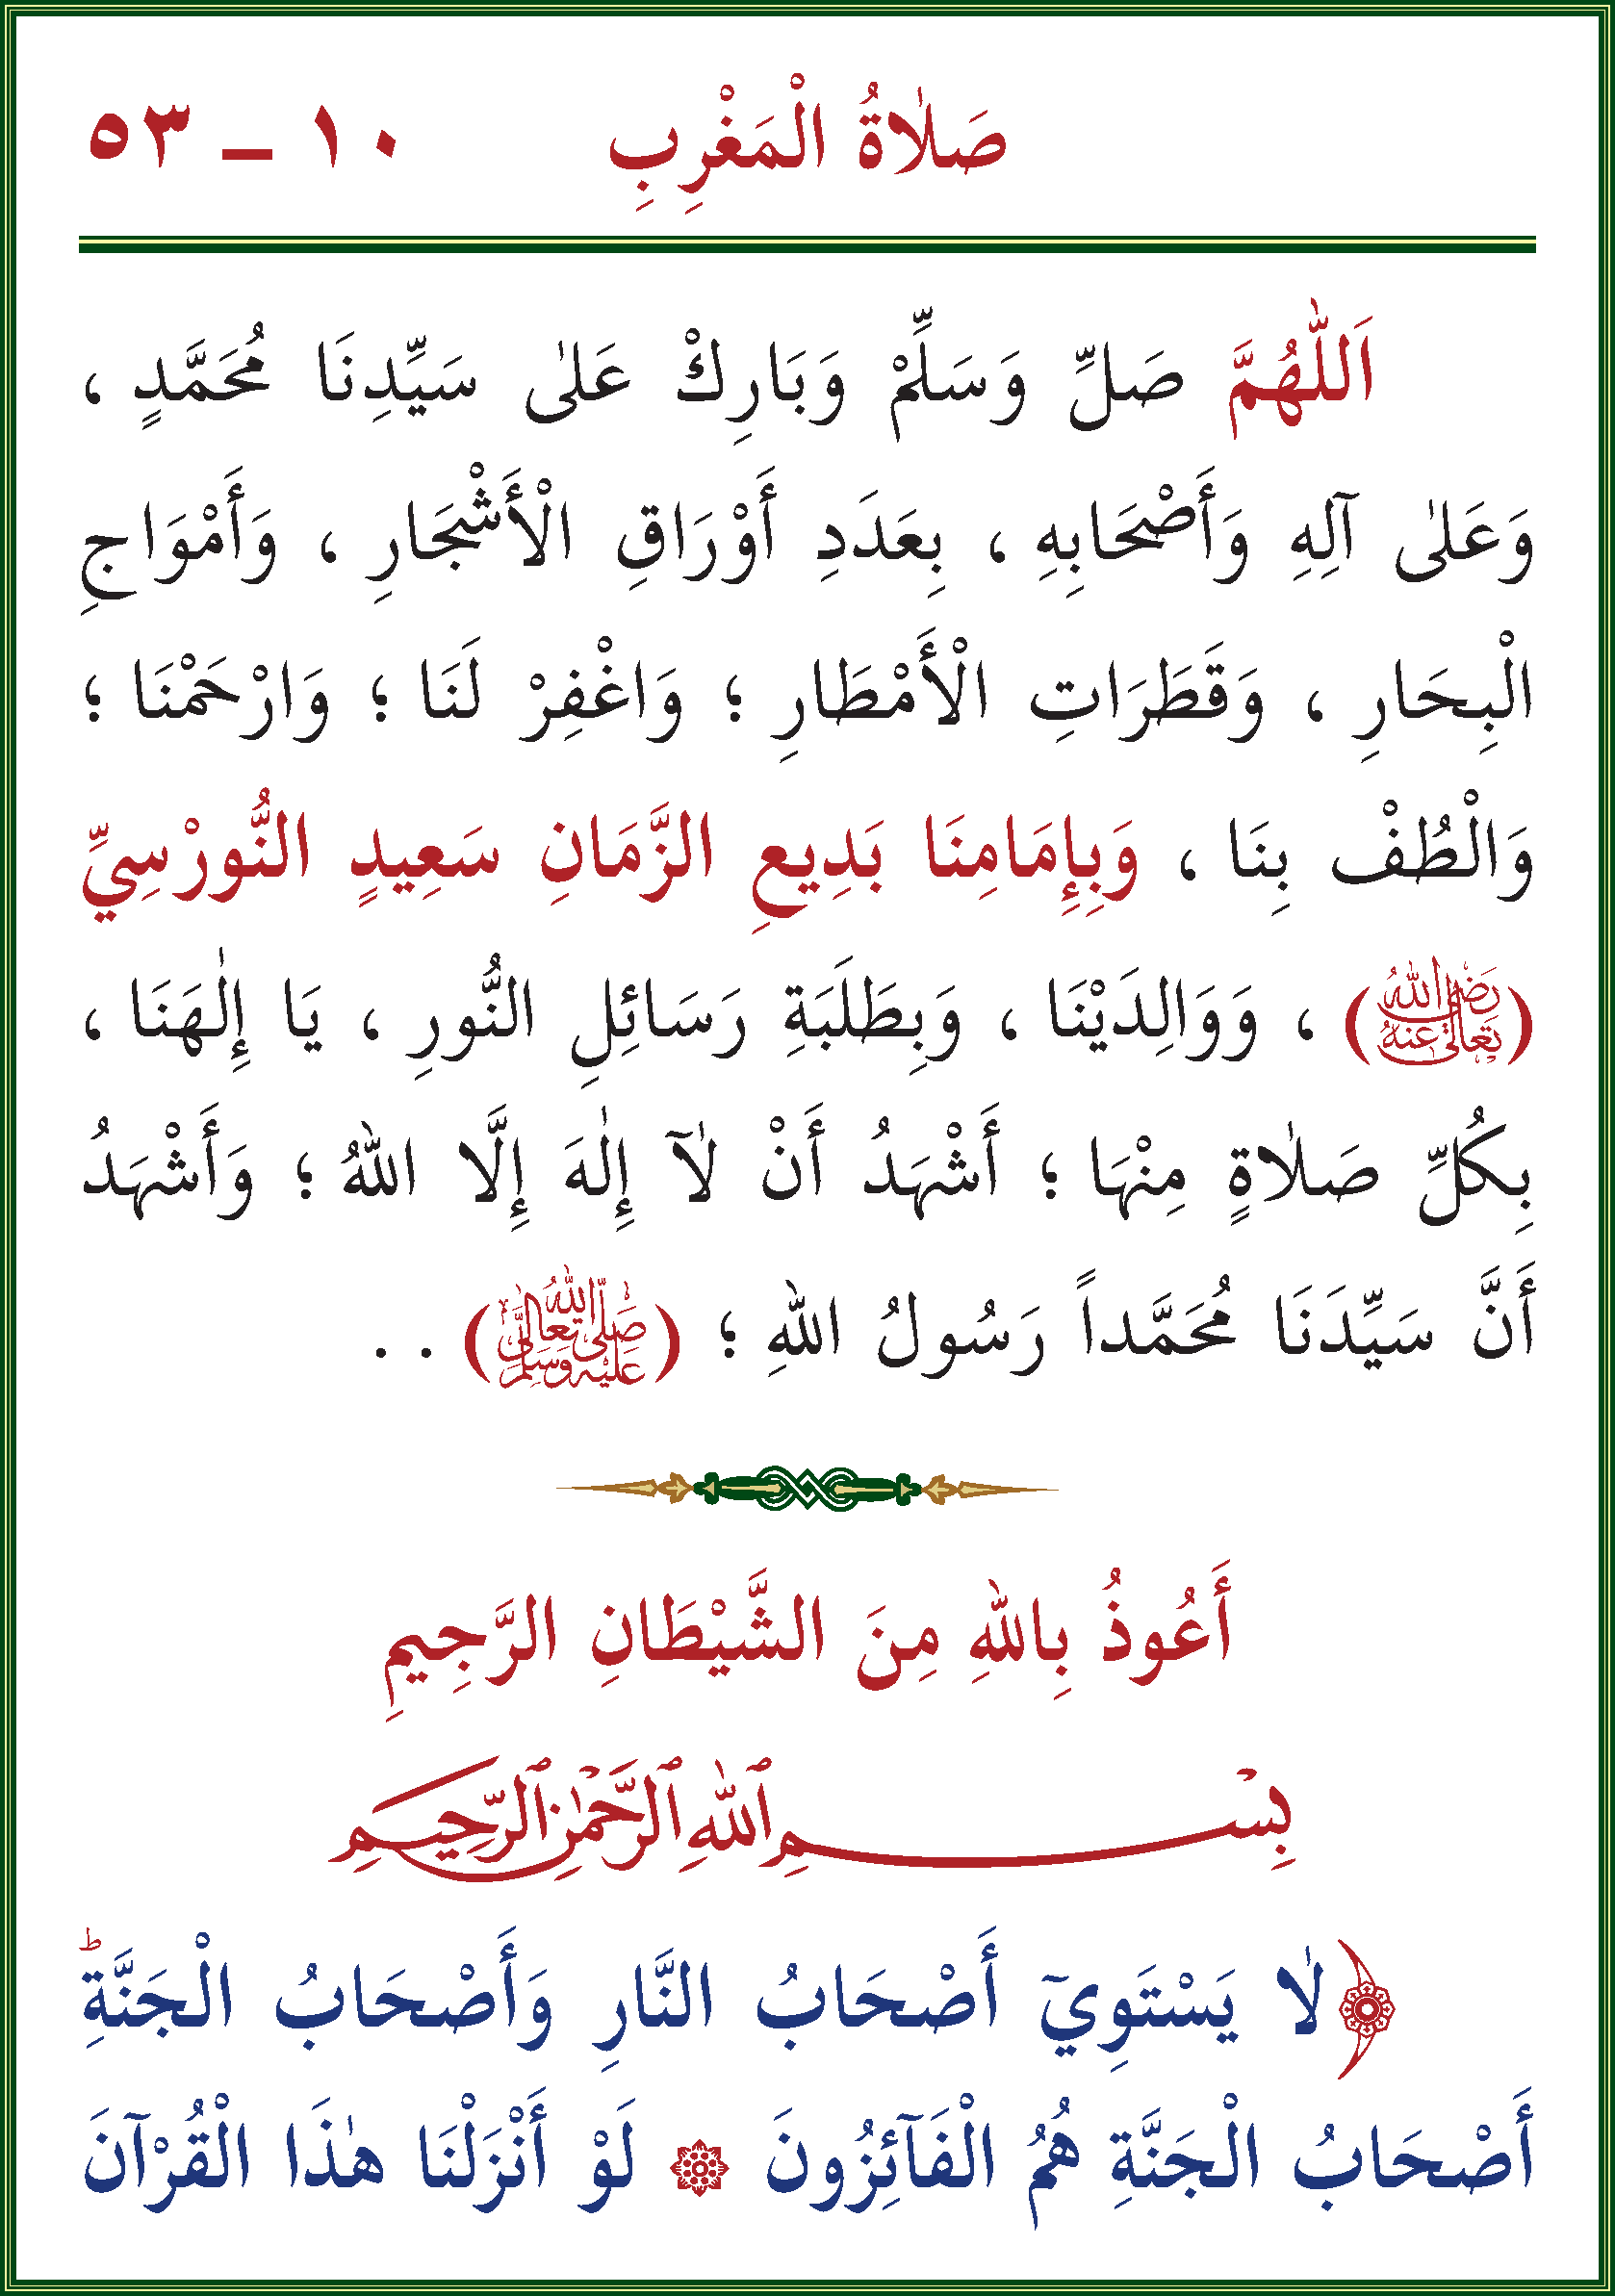 صَلَاةُ الْمَغْرِبِ ١٠ – ٥٣
اَللّٰهُمَّ صَلِّ وَسَلِّمْ وَبَارِكْ عَلٰى سَيِّدِنَا مُحَمَّدٍ ،
وَعَلٰى آلِهِ وَأَصْحَابِهِ ، بِعَدَدِ أَوْرَاقِ الْأَشْجَارِ ، وَأَمْوَاجِ
الْبِحَارِ ، وَقَطَرَاتِ الْأَمْطَارِ ؛ وَاغْفِرْ لَنَا ؛ وَارْحَمْنَا ؛
وَالْطُفْ بِنَا ، وَبِإِمَامِنَا بَدِيعِ الزَّمَانِ سَعِيدٍ النُّورْسِيِّ
(رَضِيَ اللهُ تَعَالٰى عَنْهُ) ، وَوَالِدَيْنَا ، وَبِطَلَبَةِ رَسَائِلِ النُّورِ ، يَا إِلٰهَنَا ،
بِكُلِّ صَلَاةٍ مِنْهَا ؛ أَشْهَدُ أَنْ لَآ إِلٰهَ إِلَّا اللهُ ؛ وَأَشْهَدُ
أَنَّ سَيِّدَنَا مُحَمَّداً رَسُولُ اللهِ ؛ (صَلَّى اللهُ تَعَالٰى عَلَيْهِ وَسَلَّمَ) . .
أَعُوذُ بِاللهِ مِنَ الشَّيْطَانِ الرَّجِيمِ
بِسْمِ ٱللهِ ٱلرَّحْمٰنِ ٱلرَّحِيمِ
﴿لَا يَسْتَوِيٓ أَصْحَابُ النَّارِ وَأَصْحَابُ الْجَنَّةِؕ
أَصْحَابُ الْجَنَّةِ هُمُ الْفَآئِزُونَ ۞ لَوْ أَنْزَلْنَا هٰذَا الْقُرْآنَ